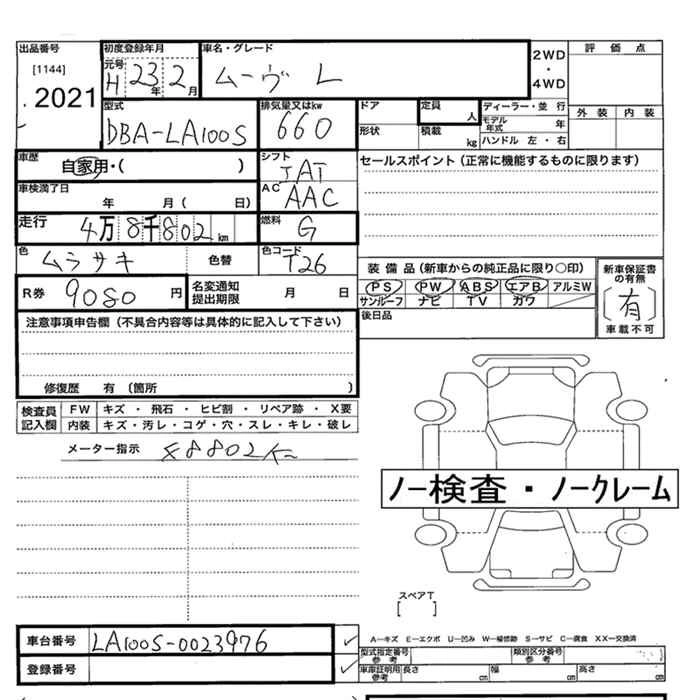 出品番号 初度登録年月 車名・グレード 評価点
[1144] 元号 H 23年 2月 ムーヴ L 2WD・4WD
2021
型式 DBA-LA100S 排気量又はkw 660 ドア 定員 人 ディーラー・並行 外装 内装
形状 積載 kg モデル年式 年
ハンドル 左・右
車歴 自家用・( ) シフト IAT セールスポイント (正常に機能するものに限ります)
車検満了日 年 月( 日) AC AAC
走行 4万8千802km 燃料 G
色 ムラサキ 色替 色コード T26
装備品 (新車からの純正品に限り○印) 新車保証書の有無
R券 9080円 名変通知提出期限 月 日 PS PW ABS エアB アルミW [有]
サンルーフ ナビ TV カワ 車載不可
注意事項申告欄 (不具合内容等は具体的に記入して下さい) 後日品
修復歴 有 (箇所 )
検査員記入欄 FW キズ・飛石・ヒビ割・リペア跡・X要
内装 キズ・汚レ・コゲ・穴・スレ・キレ・破レ
メーター指示 48802K
ノー検査・ノークレーム
スペアT
[ ]
車台番号 LA100S-0023976 A―キズ E―エクボ U―凹み W―補修跡 S―サビ C―腐食 XX―交換済
型式指定番号 参考 類別区分番号 参考
登録番号 車庫証明用参考 長さ cm 幅 cm 高さ cm